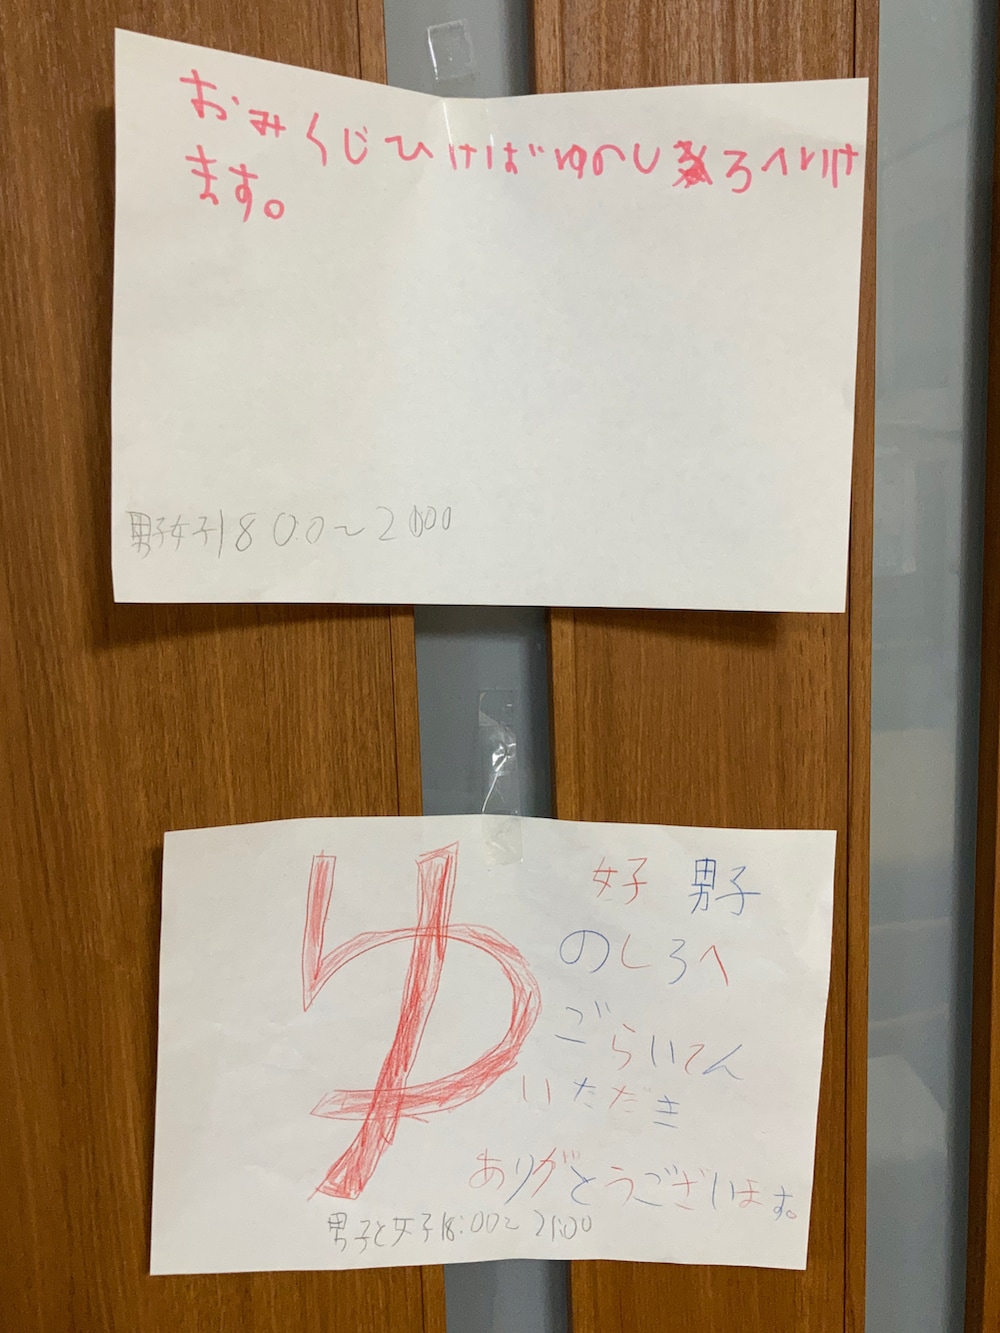 おみくじひけばゆのしろへいけ
ます。
男子女子18 00~2100
ゆ
女子 男子
のしろへ
ごらいてん
いただき
ありがとうございます。
男子と女子18:00~21:00